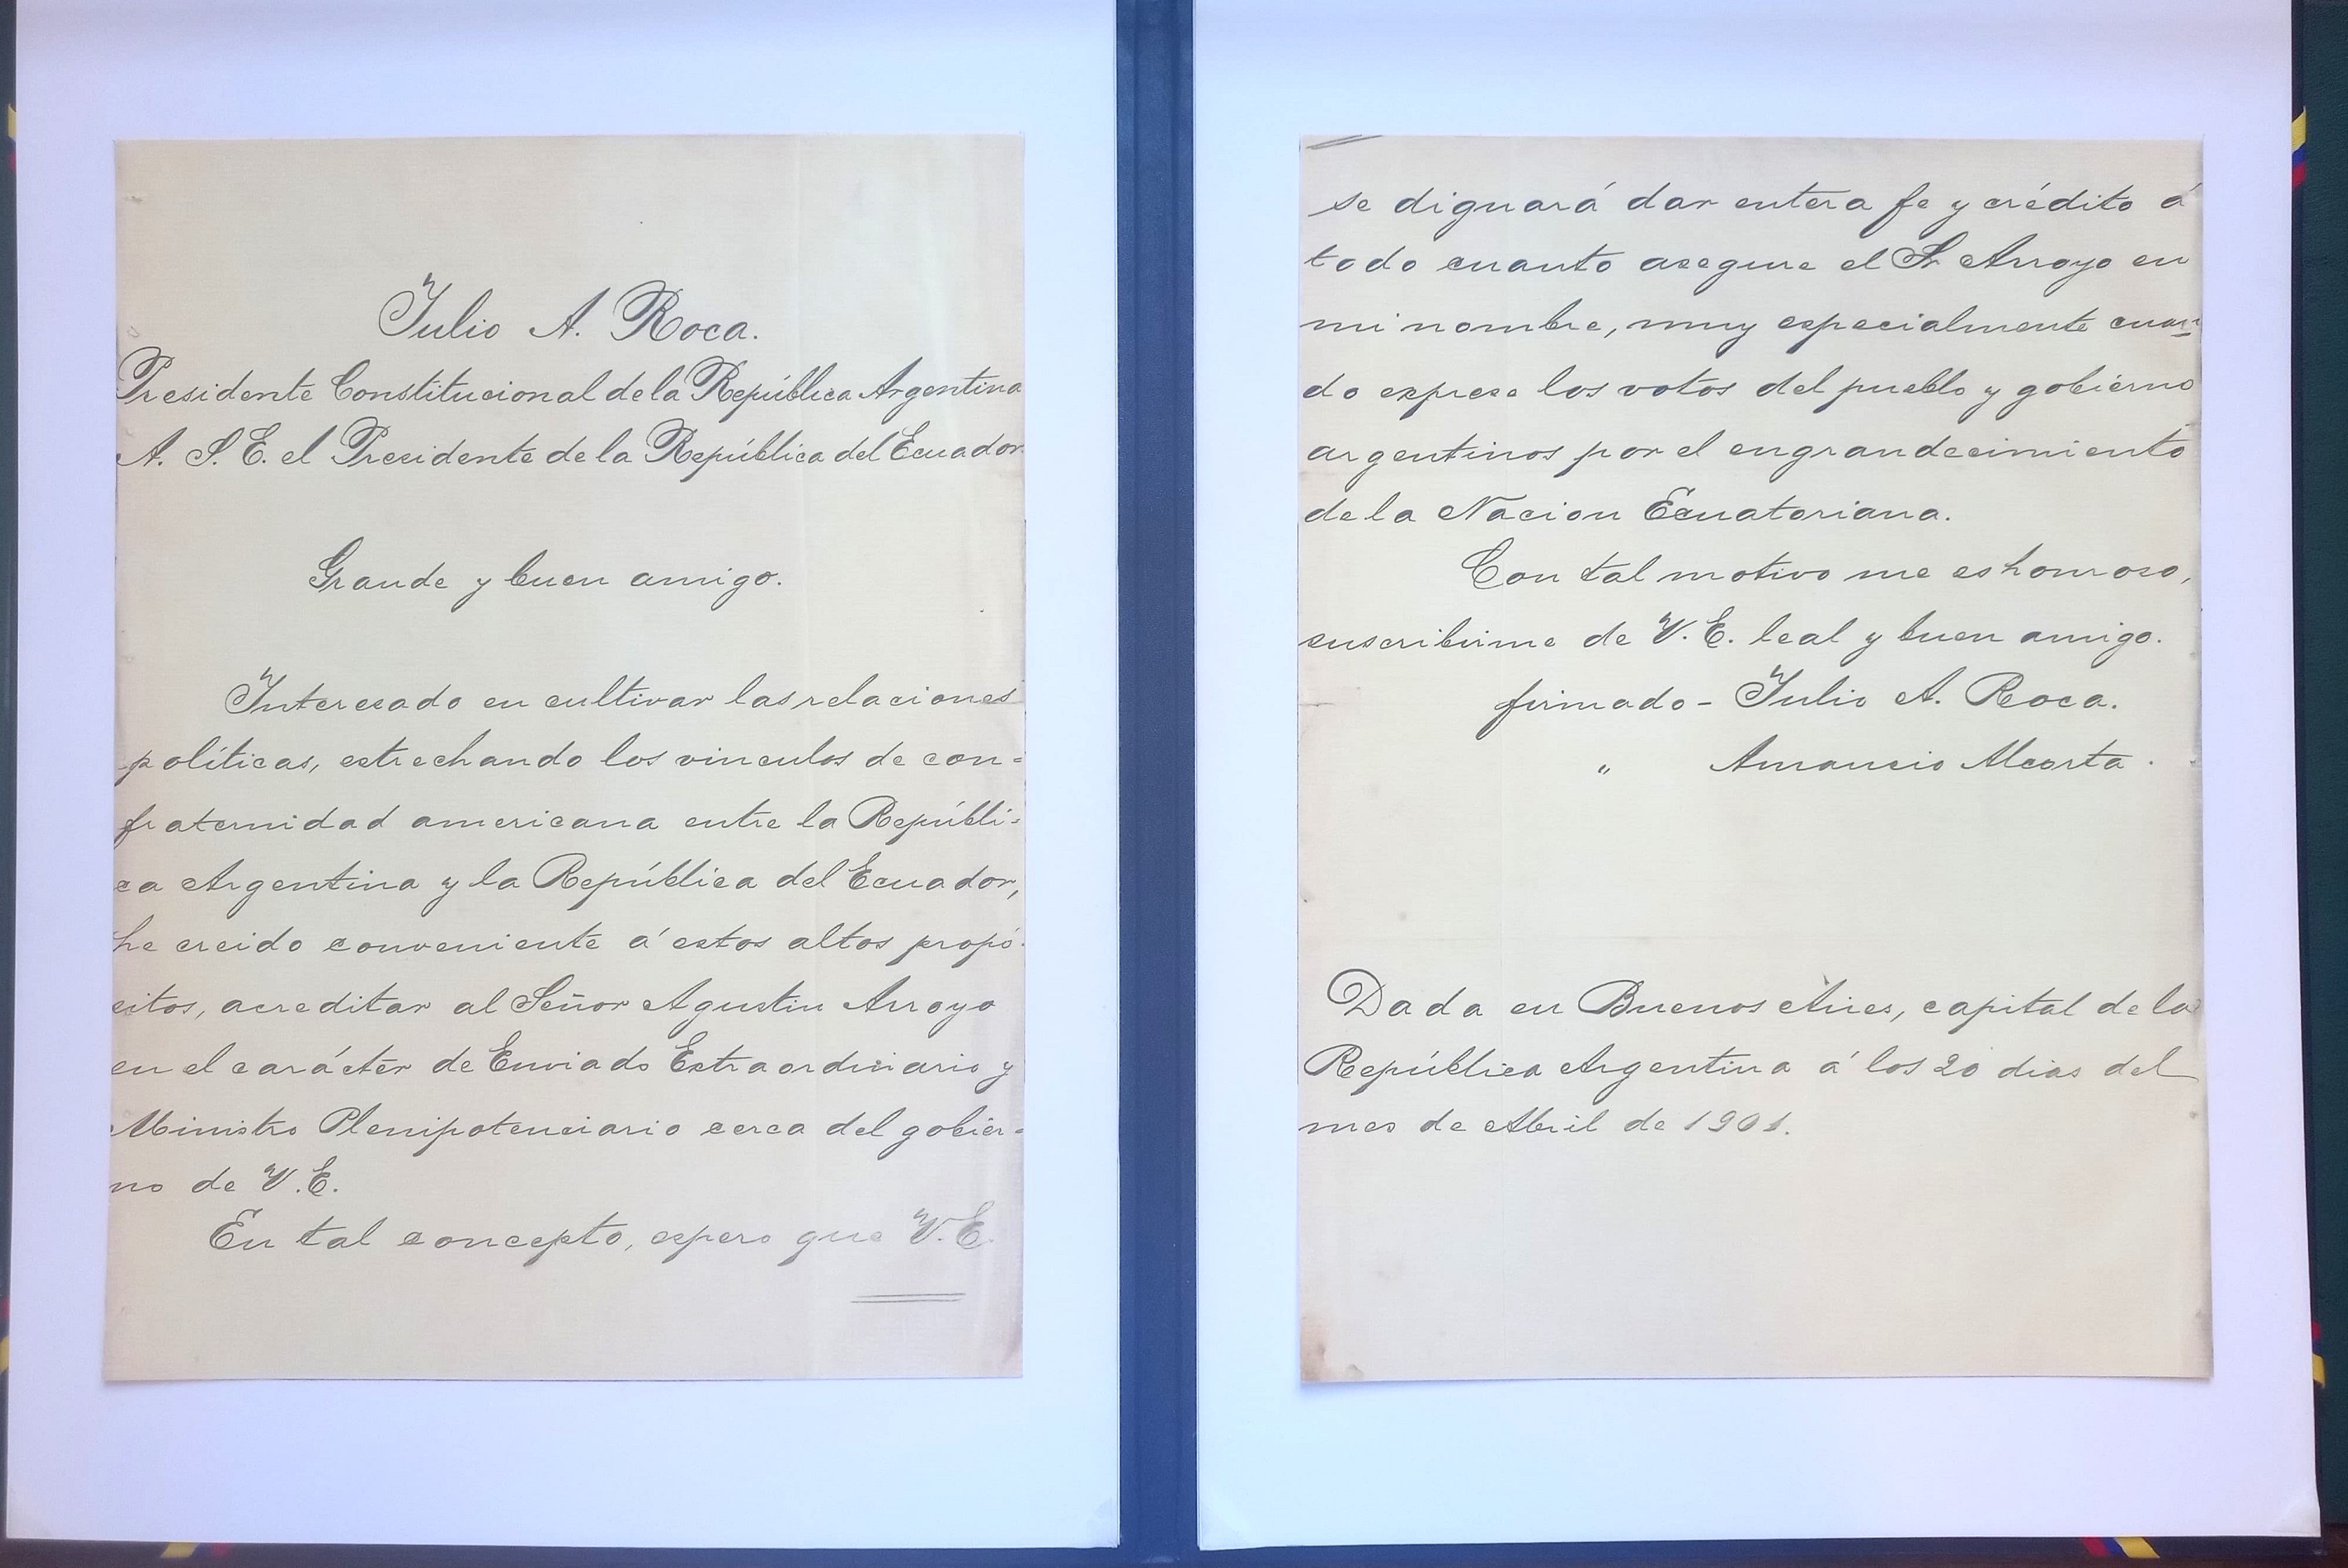 Julio A. Roca.
Presidente Constitucional de la República Argentina
A. S. E. el Presidente de la República del Ecuador.
Grande y buen amigo.
Interesado en cultivar las relaciones
políticas, estrechando los vinculos de con=
fraternidad americana entre la Repúbli=
ca Argentina y la República del Ecuador,
he creido conveniente á estos altos propó-
sitos, acreditar al Señor Agustin Arroyo
en el carácter de Enviado Extraordinario y
Ministro Plenipotenciario cerca del gobier=
no de V.E.
En tal concepto, espero que V.E.
se dignará dar entera fe y crédito á
todo cuanto asegure el Sr Arroyo en
mi nombre, muy especialmente cuan=
do exprese los votos del pueblo y gobierno
argentinos por el engrandecimiento
de la Nacion Ecuatoriana.
Con tal motivo me es honroso,
suscribirme de V.E. leal y buen amigo.
firmado - Julio A. Roca.
" Amancio Alcorta.
Dada en Buenos Aires, capital de la
República Argentina á los 20 dias del
mes de Abril de 1901.